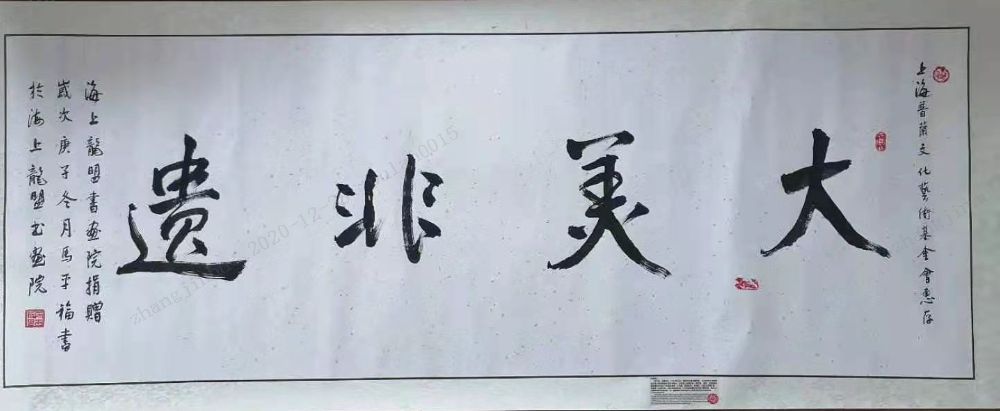 上海普蘭文化藝術基金會惠存
大美非遺
海上龍盟書畫院捐贈
歲次庚子冬月馬平福書
於海上龍盟书畫院